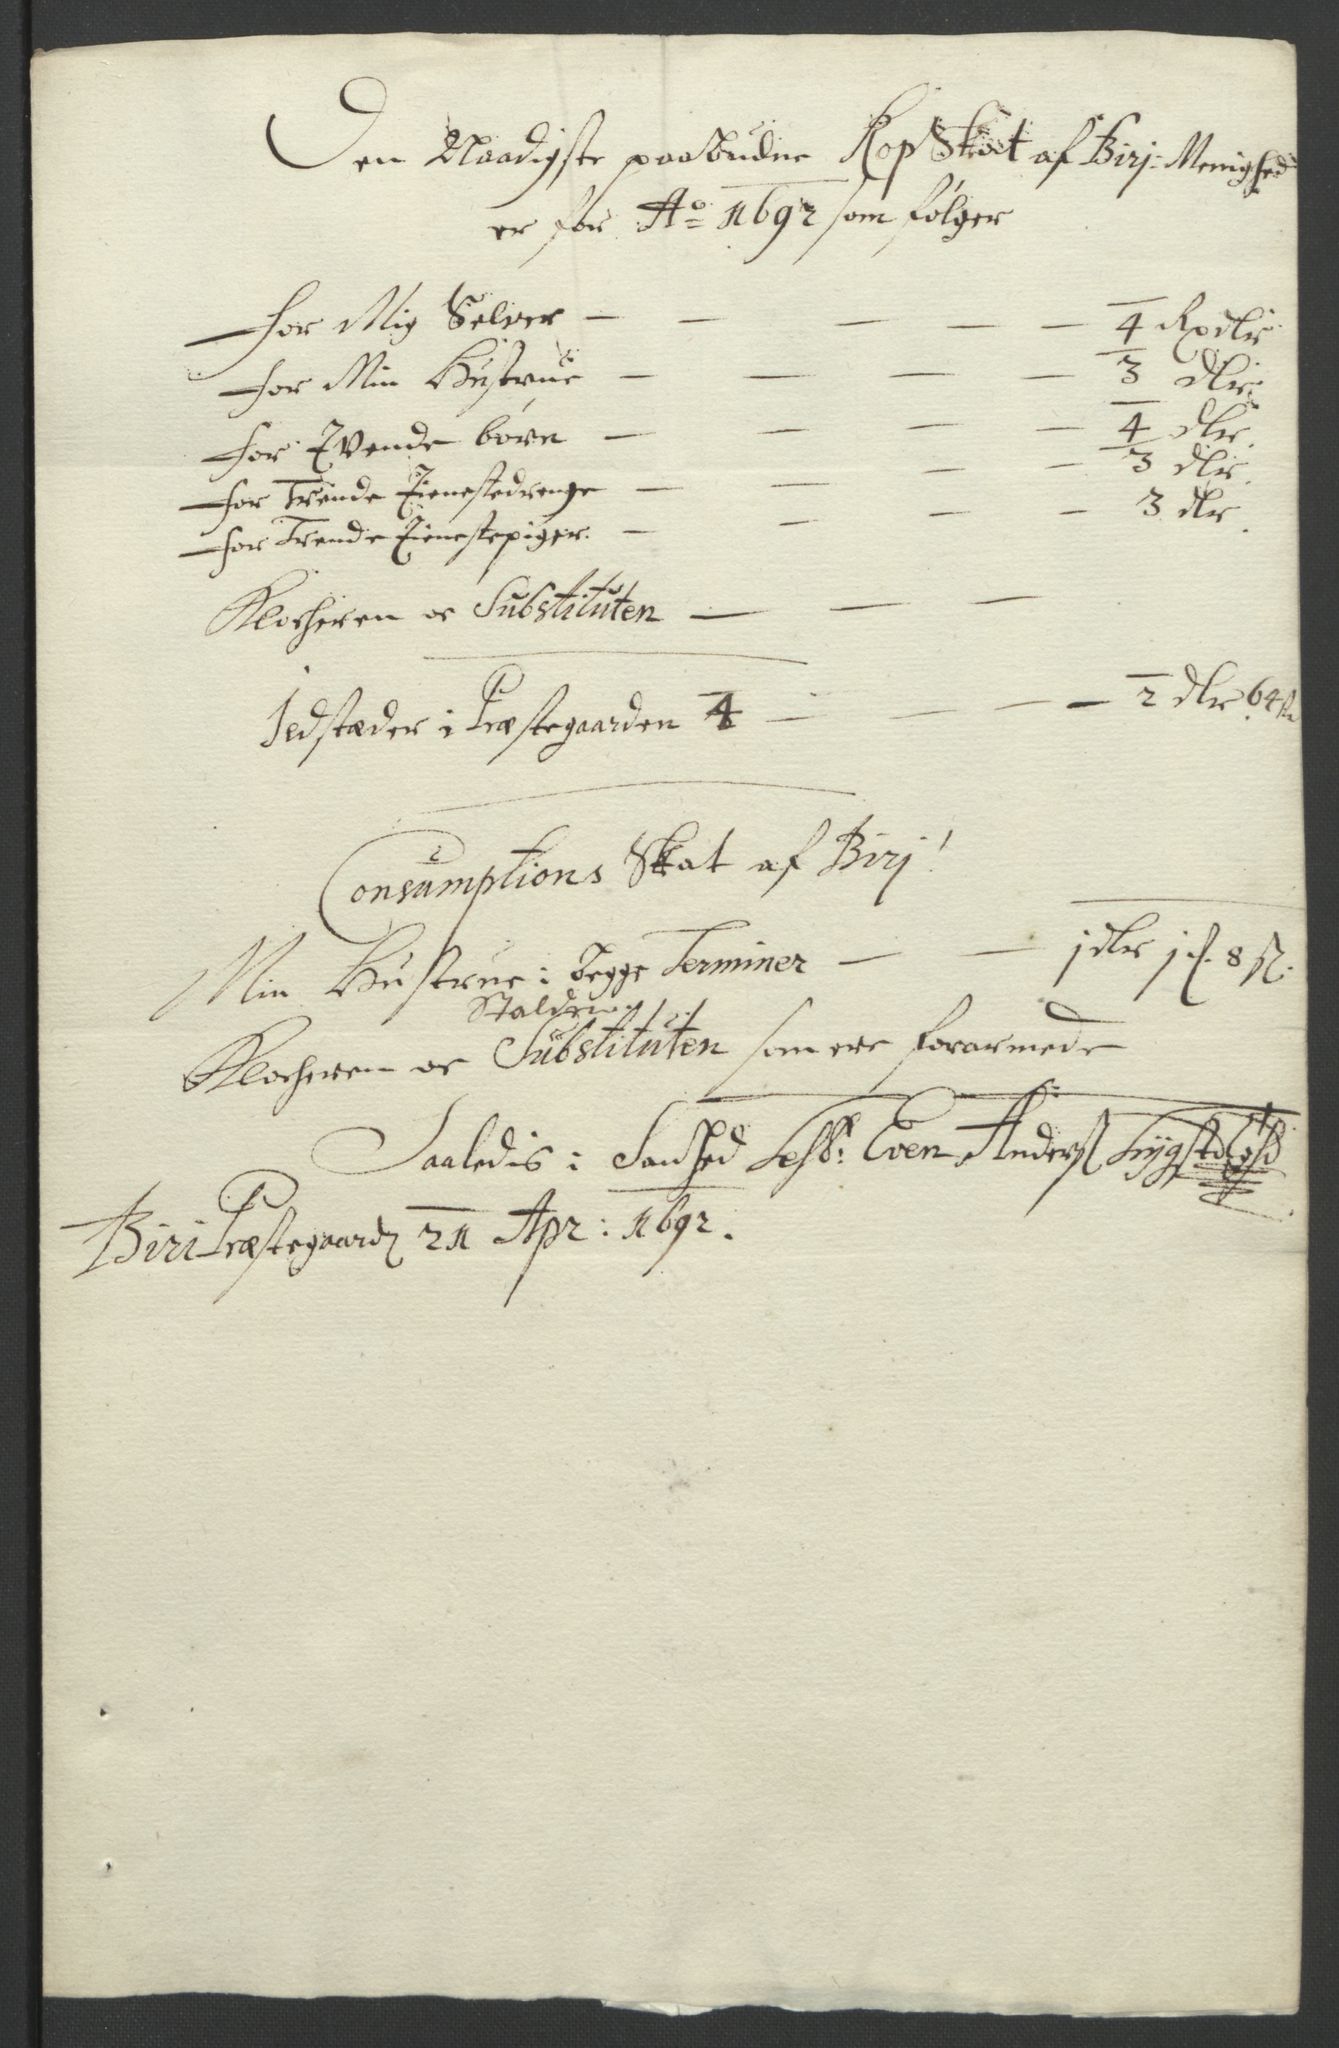 Den Naadigste paabudne Kop Skat af Birj: Menighed
er for Ao 1692 som følger
for Mig Selver — — — — — 4 Rxdlr
for Min Hustrue — — — — 3 dlr.
for Tvende børn — — — — 4 dlr.
for Trende Tienestedrenge — — — — 3 dlr.
for Trende Tienestepiger. — — — — 3 dlr.
Klocheren oc Substituten — — —
Ildstæder i Præstegaarden 4 — — — 2 dlr. 64 s
Consumptions Skat af Birj
Min Hustrue i begge Terminer — — 1 dlr 1 f. 8 s.
Stalden
Klocheren oc Substituten som ere forarmede
Saaledis i Sandhed Test: Even Anders
Biri Præstegaard 21 Apr: 1692.